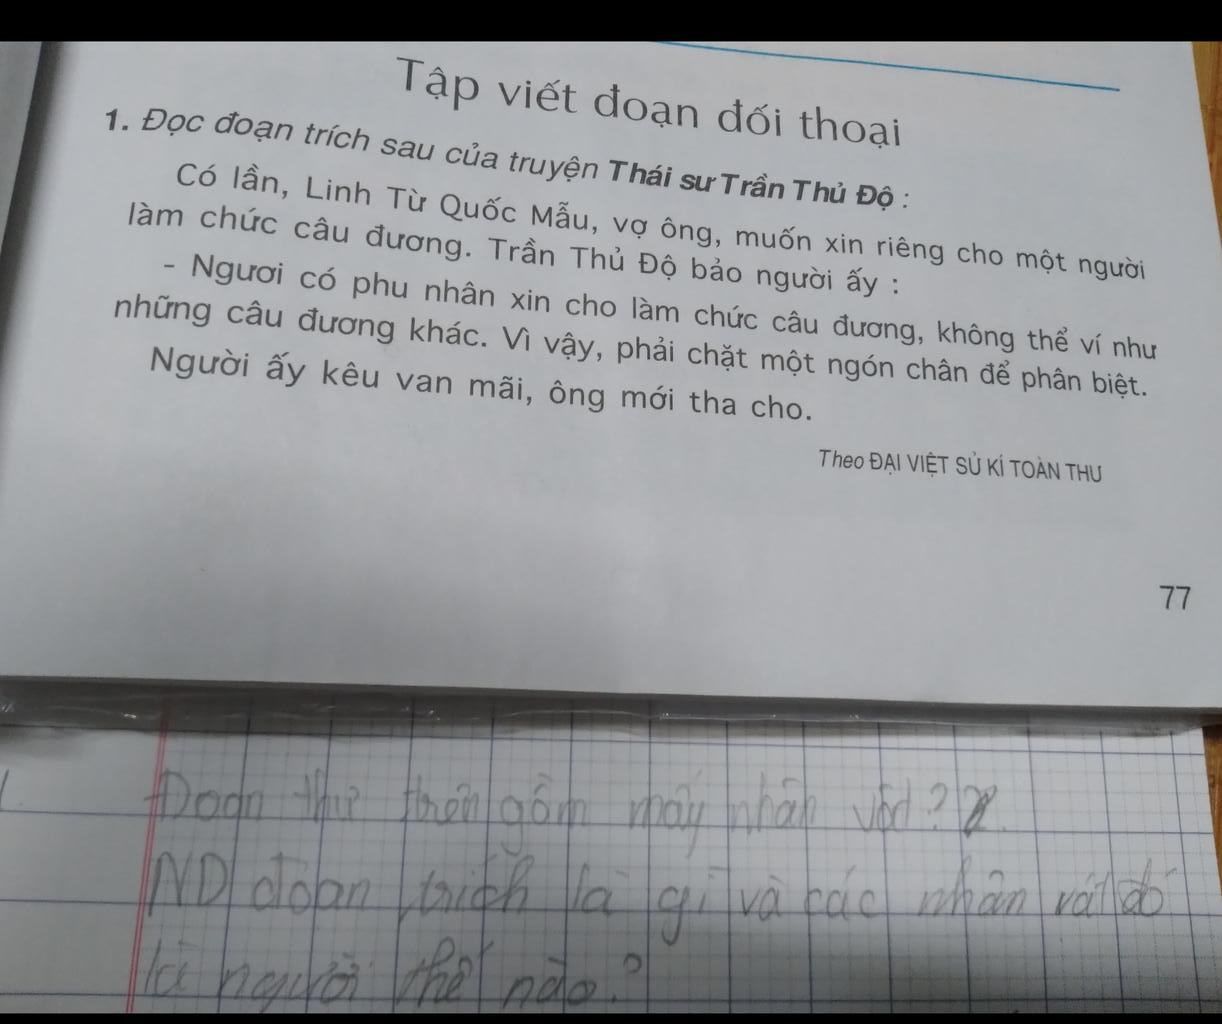 Tập viết đoạn đối thoại
1. Đọc đoạn trích sau của truyện Thái sư Trần Thủ Độ :
Có lần, Linh Từ Quốc Mẫu, vợ ông, muốn xin riêng cho một người
làm chức câu đương. Trần Thủ Độ bảo người ấy :
- Ngươi có phu nhân xin cho làm chức câu đương, không thể ví như
những câu đương khác. Vì vậy, phải chặt một ngón chân để phân biệt.
Người ấy kêu van mãi, ông mới tha cho.
Theo ĐẠI VIỆT SỬ KÍ TOÀN THƯ
77
Đoạn trên gồm mấy nhân vật?
ND đoạn trích là gì và các nhân vật đó
là người thế nào?